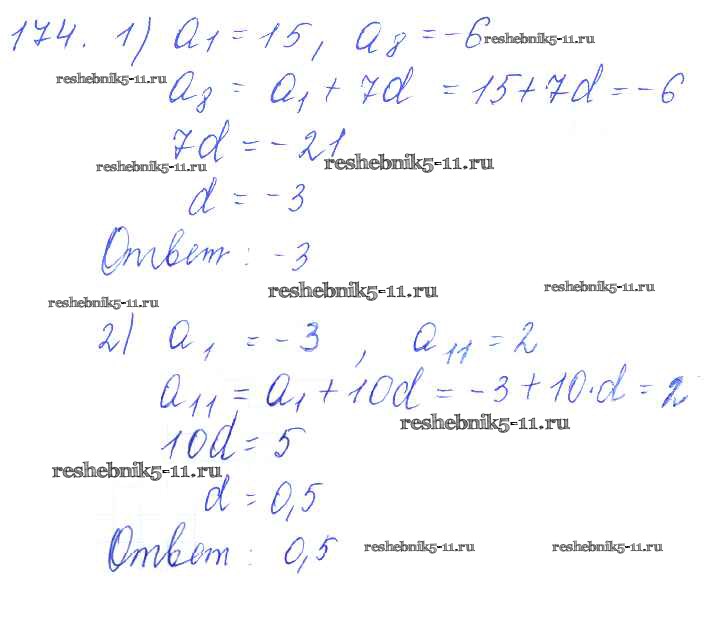 174. 1) a₁ = 15, a₈ = -6 reshebnik5-11.ru
reshebnik5-11.ru
a₈ = a₁ + 7d = 15 + 7d = -6
7d = -21
reshebnik5-11.ru reshebnik5-11.ru
d = -3
Ответ: -3
reshebnik5-11.ru reshebnik5-11.ru
reshebnik5-11.ru
2) a₁ = -3, a₁₁ = 2
a₁₁ = a₁ + 10d = -3 + 10·d = 2
reshebnik5-11.ru
10d = 5
reshebnik5-11.ru
d = 0,5
Ответ: 0,5 reshebnik5-11.ru reshebnik5-11.ru